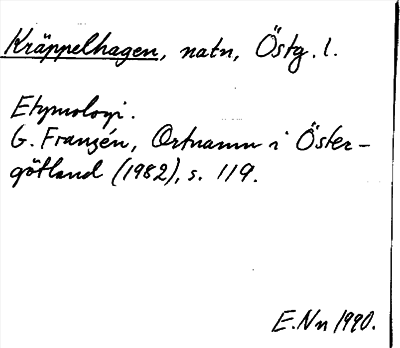 Kräppelhagen, natn, Östg. l.
Etymologi.
G. Franzén, Ortnamn i Öster-
götland (1982), s. 119.
E.Nn 1990.